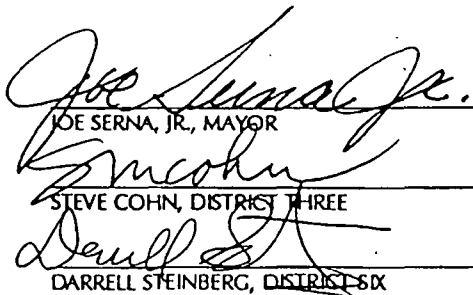 Joe Serna Jr.
JOE SERNA, JR., MAYOR
SMCohn
STEVE COHN, DISTRICT THREE
Darrell St
DARRELL STEINBERG, DISTRICT SIX